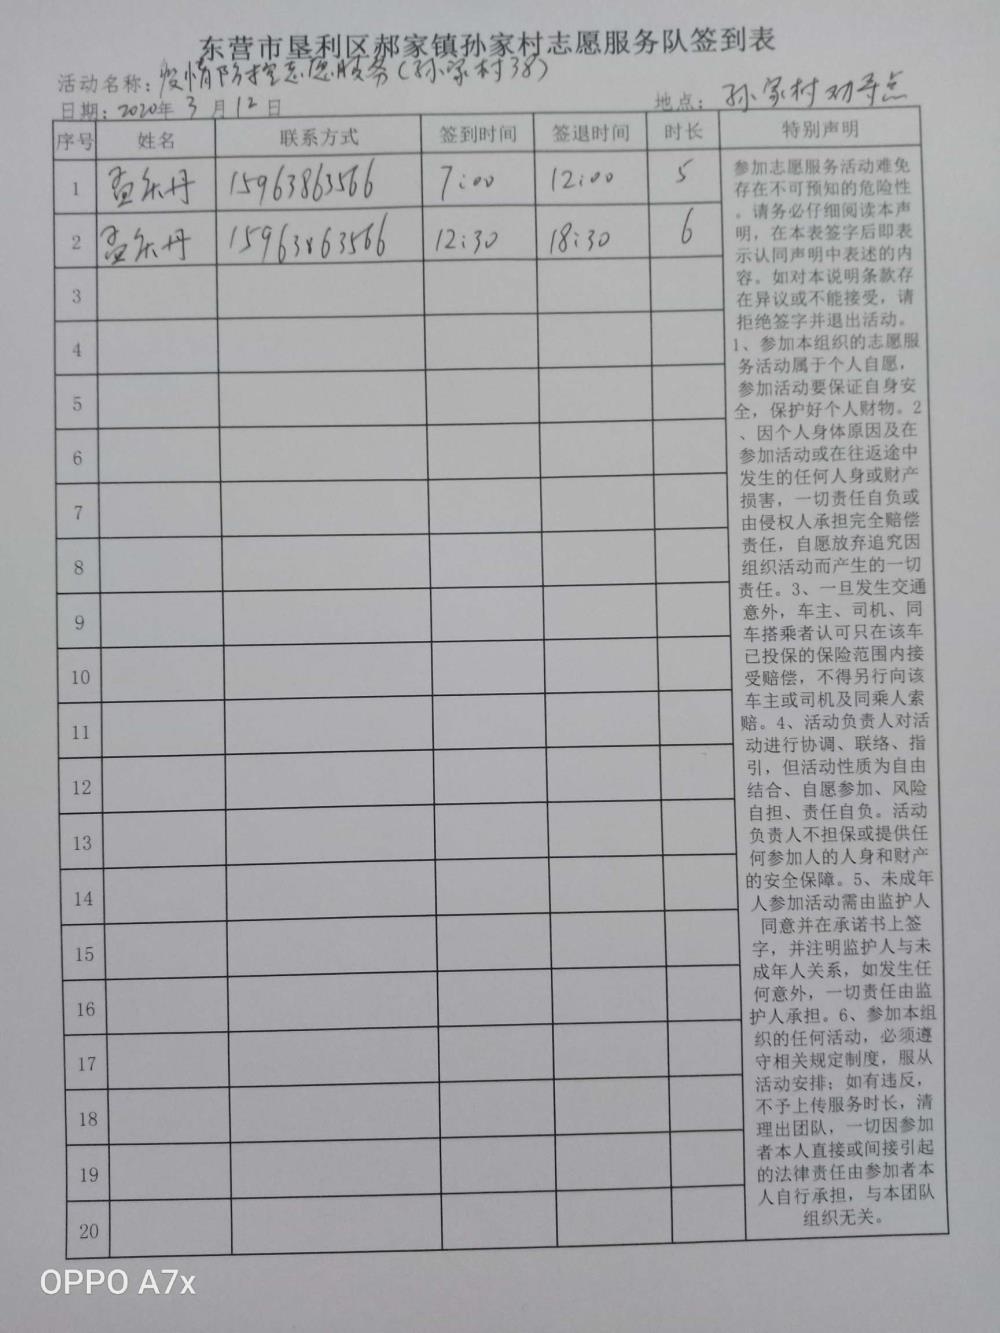 东营市垦利区郝家镇孙家村志愿服务队签到表
活动名称：疫情防控志愿服务（孙家村38）
日期：2020年3月12日 地点：孙家村劝导点
序号 姓名 联系方式 签到时间 签退时间 时长 特别声明
1 孟乐丹 15963863566 7:00 12:00 5
2 孟乐丹 15963863566 12:30 18:30 6
3
4
5
6
7
8
9
10
11
12
13
14
15
16
17
18
19
20
参加志愿服务活动难免
存在不可预知的危险性
。请务必仔细阅读本声
明，在本表签字后即表
示认同声明中表述的内
容。如对本说明条款存
在异议或不能接受，请
拒绝签字并退出活动。
1、参加本组织的志愿服
务活动属于个人自愿，
参加活动要保证自身安
全，保护好个人财物。2
、因个人身体原因及在
参加活动或在往返途中
发生的任何人身或财产
损害，一切责任自负或
由侵权人承担完全赔偿
责任，自愿放弃追究因
组织活动而产生的一切
责任。3、一旦发生交通
意外，车主、司机、同
车搭乘者认可只在该车
已投保的保险范围内接
受赔偿，不得另行向该
车主或司机及同乘人索
赔。4、活动负责人对活
动进行协调、联络、指
引，但活动性质为自由
结合、自愿参加、风险
自担、责任自负。活动
负责人不担保或提供任
何参加人的人身和财产
的安全保障。5、未成年
人参加活动需由监护人
同意并在承诺书上签
字，并注明监护人与未
成年人关系，如发生任
何意外，一切责任由监
护人承担。6、参加本组
织的任何活动，必须遵
守相关规定制度，服从
活动安排；如有违反，
不予上传服务时长，清
理出团队，一切因参加
者本人直接或间接引起
的法律责任由参加者本
人自行承担，与本团队
组织无关。
OPPO A7x